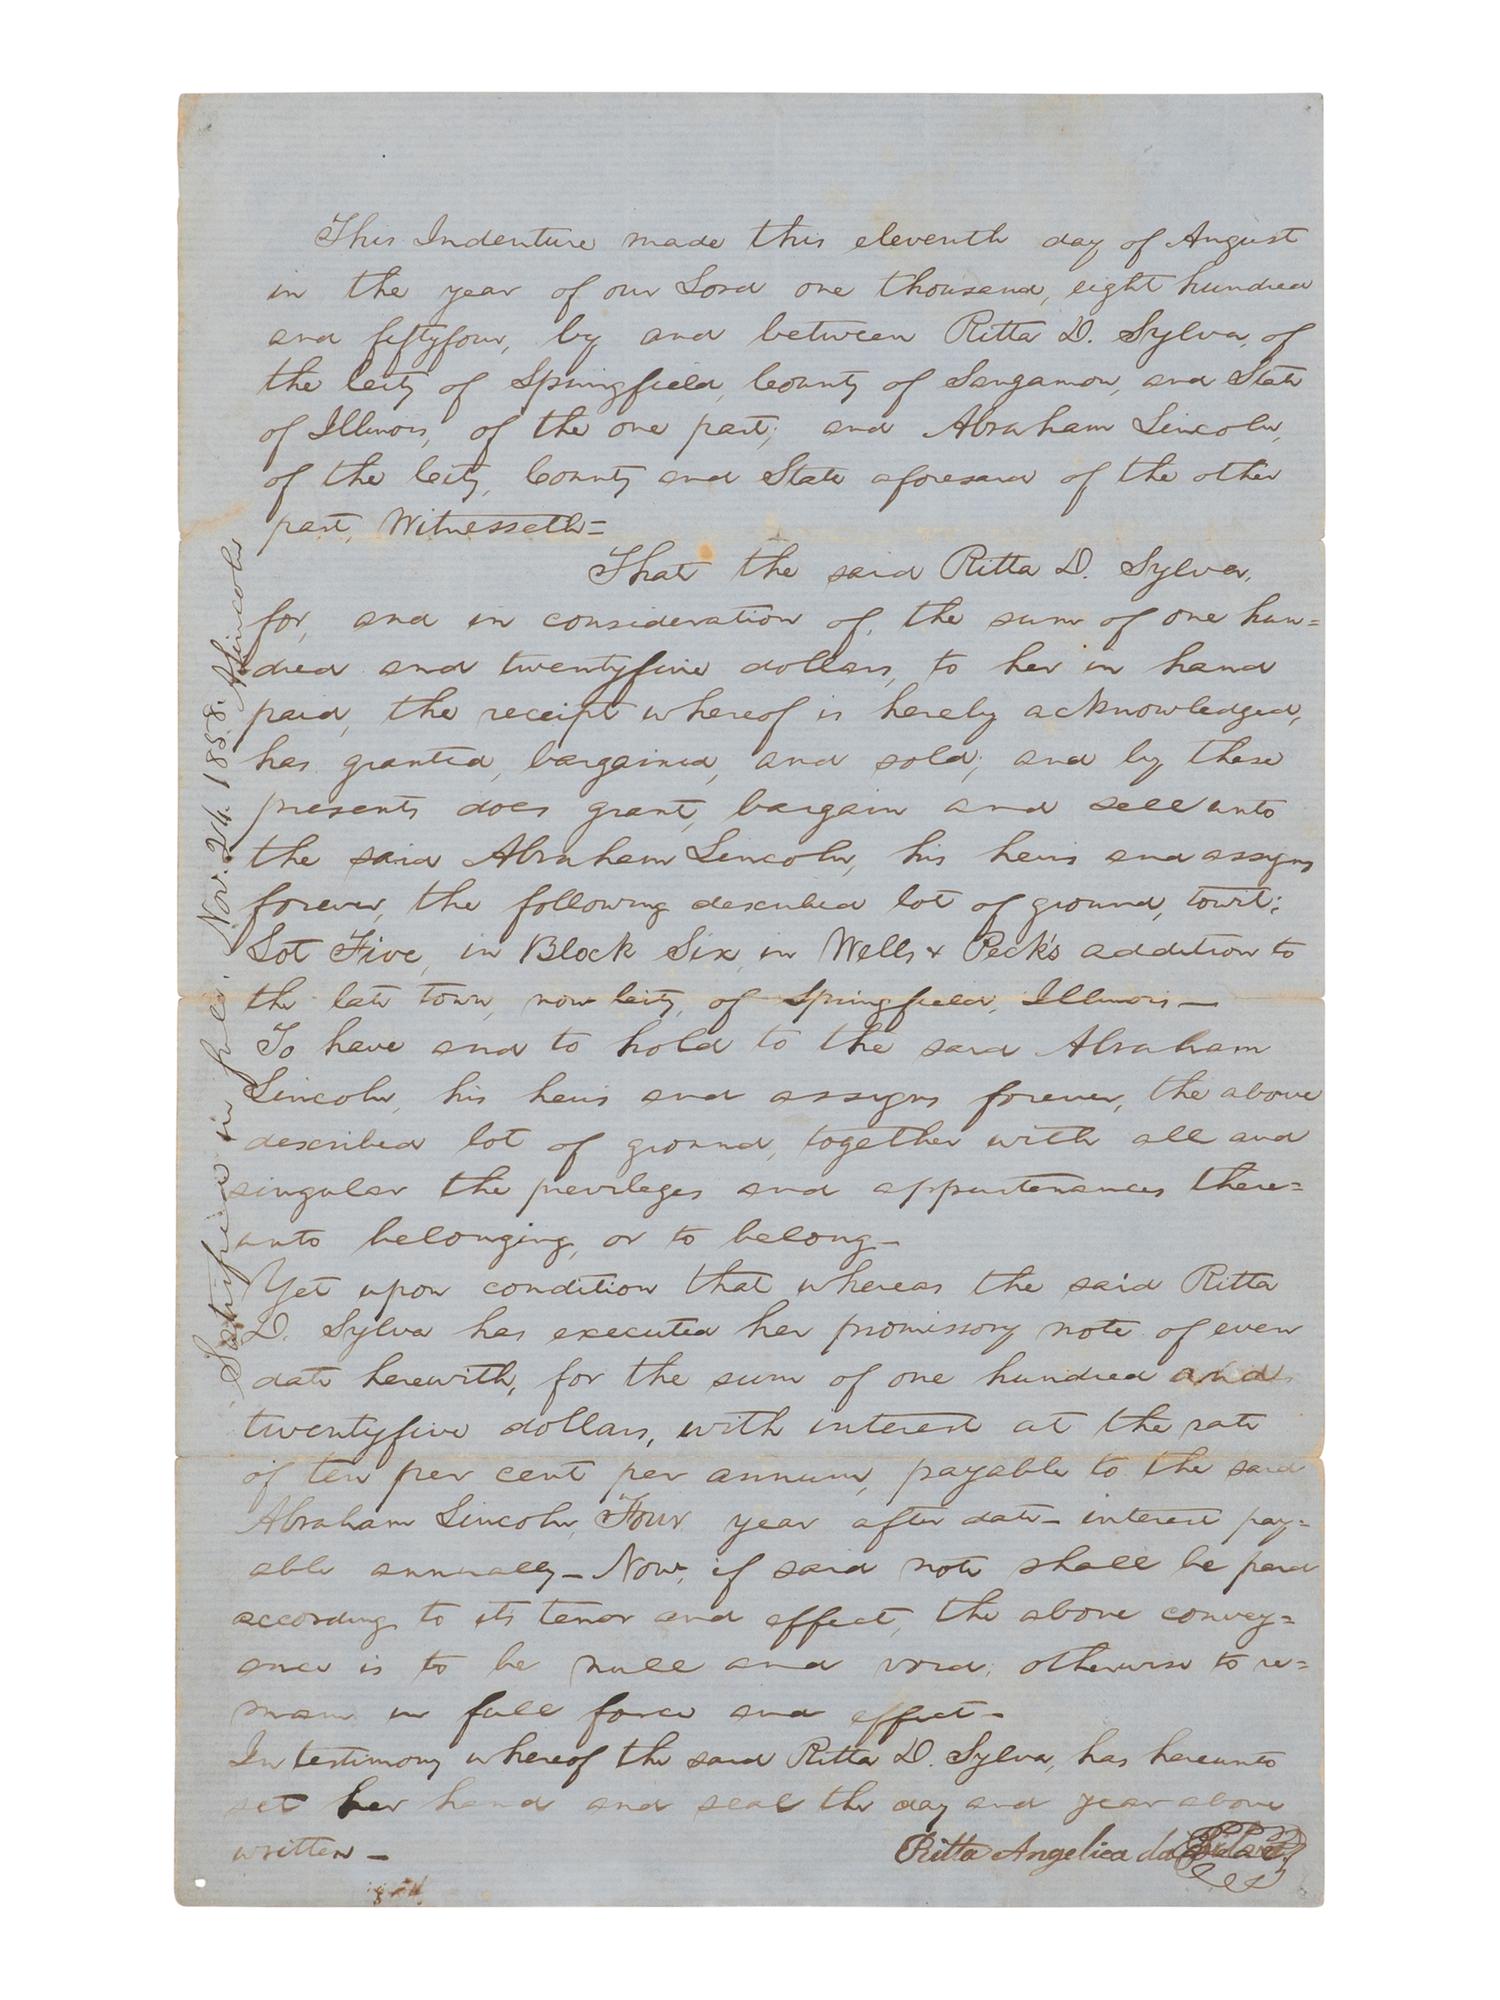 This Indenture made this eleventh day of August
in the year of our Lord one thousand, eight hundred
and fiftyfour, by and between Ritta D. Sylva, of
the City of Springfield, County of Sangamon, and State
of Illinois, of the one part; and Abraham Lincoln,
of the City, County and State aforesaid of the other
part, Witnesseth=
That the said Ritta D. Sylva,
for, and in consideration of, the sum of one hun=
dred and twentyfive dollars, to her in hand
paid, the receipt whereof is hereby acknowledged,
has granted, bargained, and sold; and by these
presents does grant, bargain and sell unto
the said Abraham Lincoln, his heirs and assigns
forever, the following described lot of ground, towit:
Lot Five, in Block Six, in Wells & Peck's addition to
the late town, now City, of Springfield, Illinois—
To have and to hold to the said Abraham
Lincoln, his heirs and assigns forever, the above
described lot of ground, together with all and
singular the privileges and appurtenances there=
unto belonging, or to belong—
Yet upon condition that whereas the said Ritta
D. Sylva has executed her promissory note of even
date herewith, for the sum of one hundred and
twentyfive dollars, with interest at the rate
of ten per cent per annum, payable to the said
Abraham Lincoln, Four year after date— interest pay=
able annually— Now, if said note shall be paid
according to its tenor and effect, the above convey=
ance is to be null and void; otherwise to re=
main in full force and effect—
In testimony whereof the said Ritta D. Sylva, has hereunto
set her hand and seal the day and year above
written—
Ritta Angelica da Silva
Satisfied in full. Nov. 24. 1858. A Lincoln